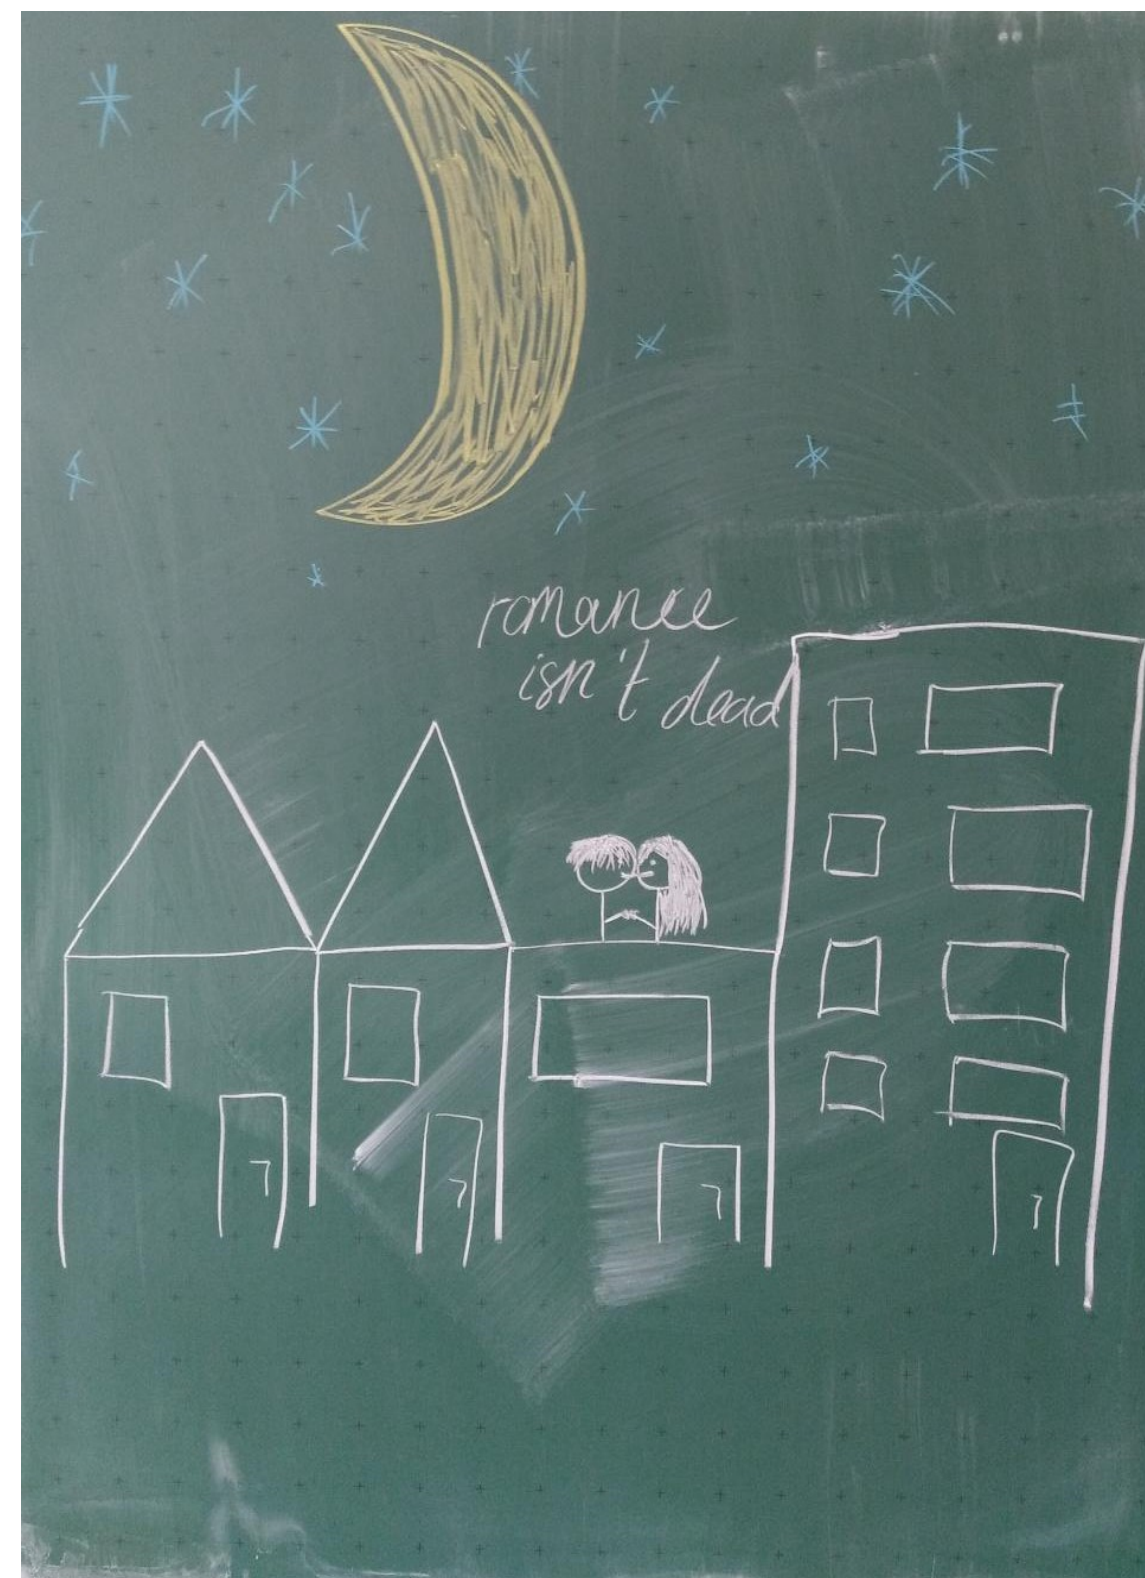 romance
isn't dead